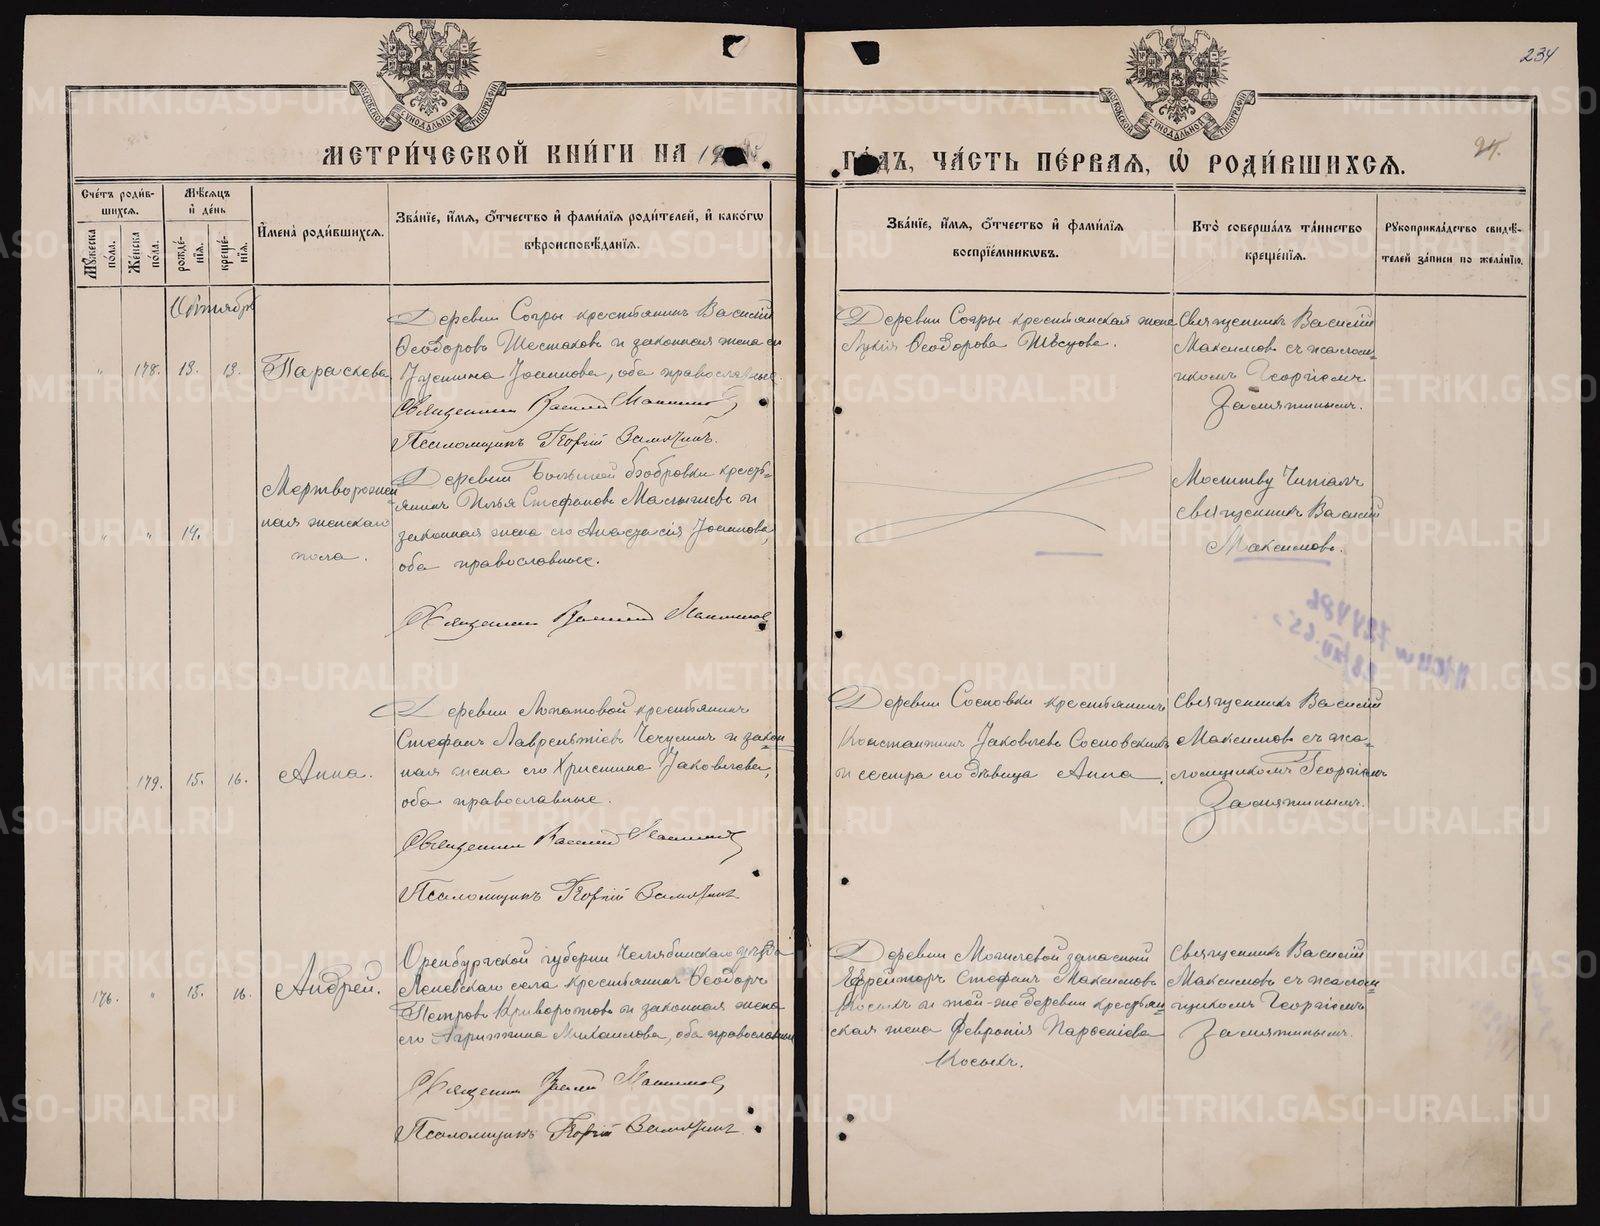 234
МОСКОВСКОЙ СѴНОДАЛЬНОЙ ТИПОГРАФІИ
МОСКОВСКОЙ СѴНОДАЛЬНОЙ ТИПОГРАФІИ
МЕТРИ́ЧЕСКОЙ КНИ́ГИ НА 19
ГО́ДЪ, ЧА́СТЬ ПЕ́РВАЯ, Ѡ҆ РОДИ́ВШИХСЯ.
Сче́тъ роди́в-
шихся.
Мѣ́сяцъ
и҆ де́нь
Му́жеска
по́ла.
Же́нска
по́ла.
рожде́-
нїя.
креще́-
нїя.
И҆мена̀ роди́вшихся.
Зва́нїе, и҆́мя, ѻ҆́тчество и҆ фами́лїя роди́телей, и҆ како́гѡ
вѣроисповѣ́данїя.
Зва́нїе, и҆́мя, ѻ҆́тчество и҆ фами́лїя
воспрїе́мникѡвъ.
Кто̀ соверша́лъ та́инство
креще́нїя.
Рꙋкоприкла́дство свидѣ́-
телей за́писи по жела́нїю.
Октября
" 178. 13. 13. Параскева
Деревни Согры крестьянинъ Василій
Ѳеодоровъ Шестаковъ и законная жена его
Іустина Іоаннова, оба православные.
Священникъ Василій Максимовъ
Псаломщикъ Георгій Замятинъ.
Деревни Согры крестьянская жена
Лукія Ѳеодорова
Священникъ Василій
Максимовъ съ псалом-
щикомъ Георгіемъ
Замятинымъ.
" " 14.
Мертворожден
ная женскаго
пола.
Деревни Большой Бобровки кресть-
янинъ Илья Стефановъ Малышевъ и
законная жена его Анастасія Іоаннова,
оба православные.
Священникъ Василій Максимовъ
Молитву читалъ
священникъ Василій
Максимовъ.
179. 15. 16. Анна.
Деревни Лопатовой крестьянинъ
Стефанъ Лаврентіевъ Чечулинъ и закон
ная жена его Христина Іаковлева,
оба православные.
Священникъ Василій Максимовъ
Псаломщикъ Георгій Замятинъ
Деревни Сосновки крестьянинъ
Константинъ Іаковлевъ Сосновскихъ
и сестра его дѣвица Анна.
Священникъ Василій
Максимовъ съ пса-
ломщикомъ Георгіемъ
Замятинымъ.
176. " 15. 16. Андрей.
Оренбургской губерніи Челябинскаго уѣзда
села крестьянинъ Ѳеодоръ
Петровъ Криворотовъ и законная жена
его Агриппина Михаилова, оба православные
Священникъ Василій Максимовъ
Псаломщикъ Георгій Замятинъ.
Деревни Могилевой запасный
Ефрейторъ Стефанъ Максимовъ
Косыхъ и той-же деревни крестьян-
ская жена Февронія Парѳеніева
Косыхъ.
Священникъ Василій
Максимовъ съ псалом-
щикомъ Георгіемъ
Замятинымъ.
METRIKI.GASO-URAL.RU